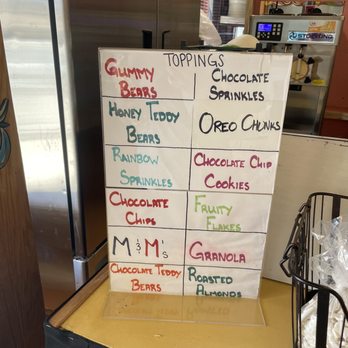 TOPPINGS
GUMMY
BEARS
CHOCOLATE
SPRINKLES
HONEY TEDDY
BEARS
OREO CHUNKS
RAINBOW
SPRINKLES
CHOCOLATE CHIP
COOKIES
CHOCOLATE
CHIPS
FRUITY
FLAKES
M & M's
GRANOLA
CHOCOLATE TEDDY
BEARS
ROASTED
ALMONDS